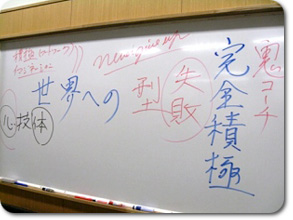 鬼コーチ
完全積極
失敗
型
never give up
世界への
心技体